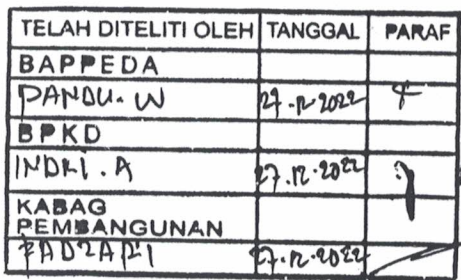 TELAH DITELITI OLEH TANGGAL PARAF
BAPPEDA
PANDU. W 27.12.2022
BPKD
INDRI. A 27.12.2022
KABAG
PEMBANGUNAN
27.12.2022